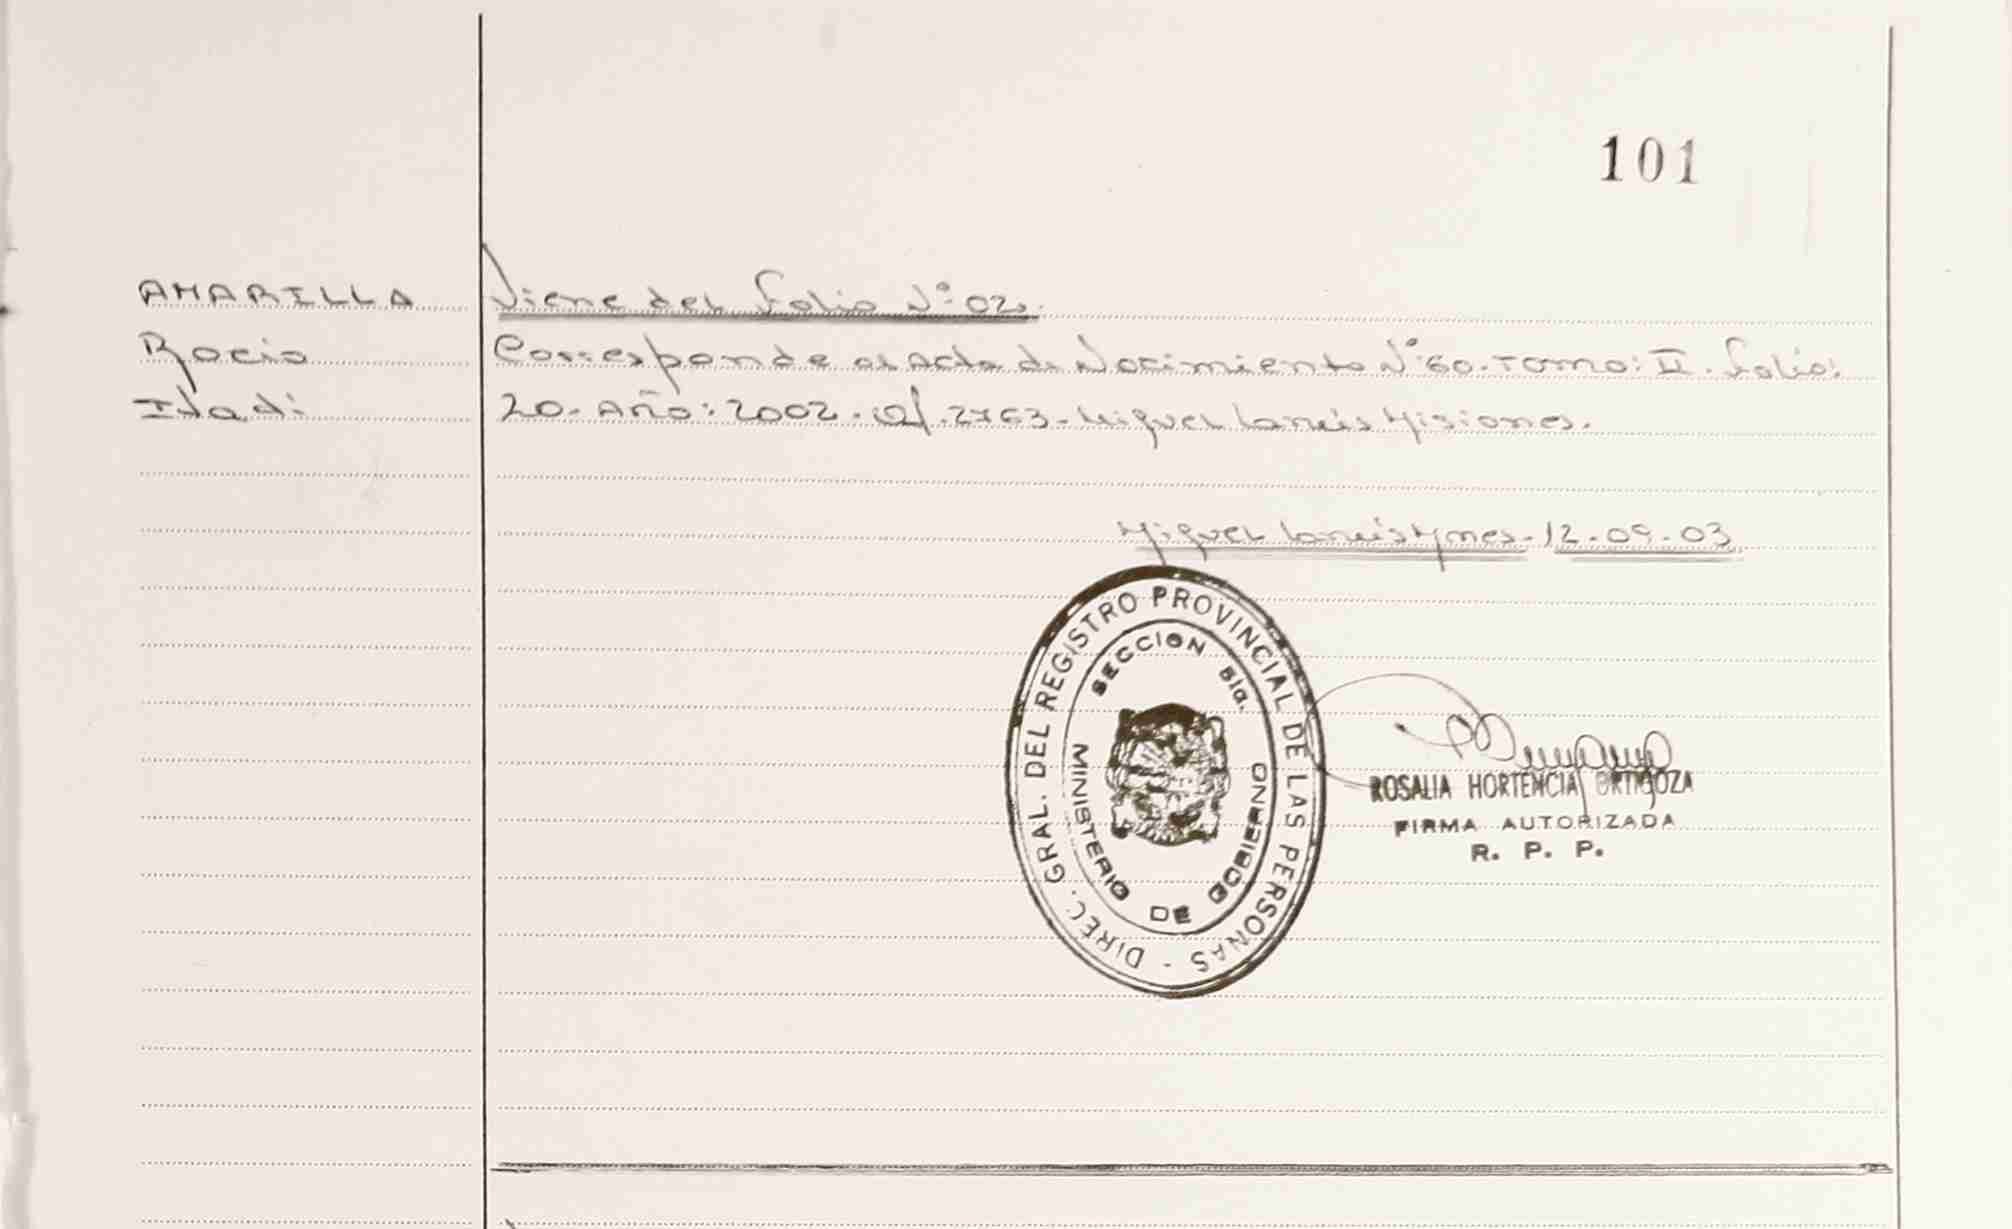 101
AMARILLA
Rocio
Itatí:
Viene del folio N° 02.
Corresponde al Acta de Nacimiento N° 60. Tomo: II. folio:
20. Año: 2002. Of. 2763. Miguel Lanús Misiones.
Miguel Lanús Mnes. 12.09.03
DIREC. GRAL. DEL REGISTRO PROVINCIAL DE LAS PERSONAS -
SECCION Sig.
MINISTERIO DE GOBIERNO
ROSALIA HORTENCIA ORTIGOZA
FIRMA AUTORIZADA
R. P. P.